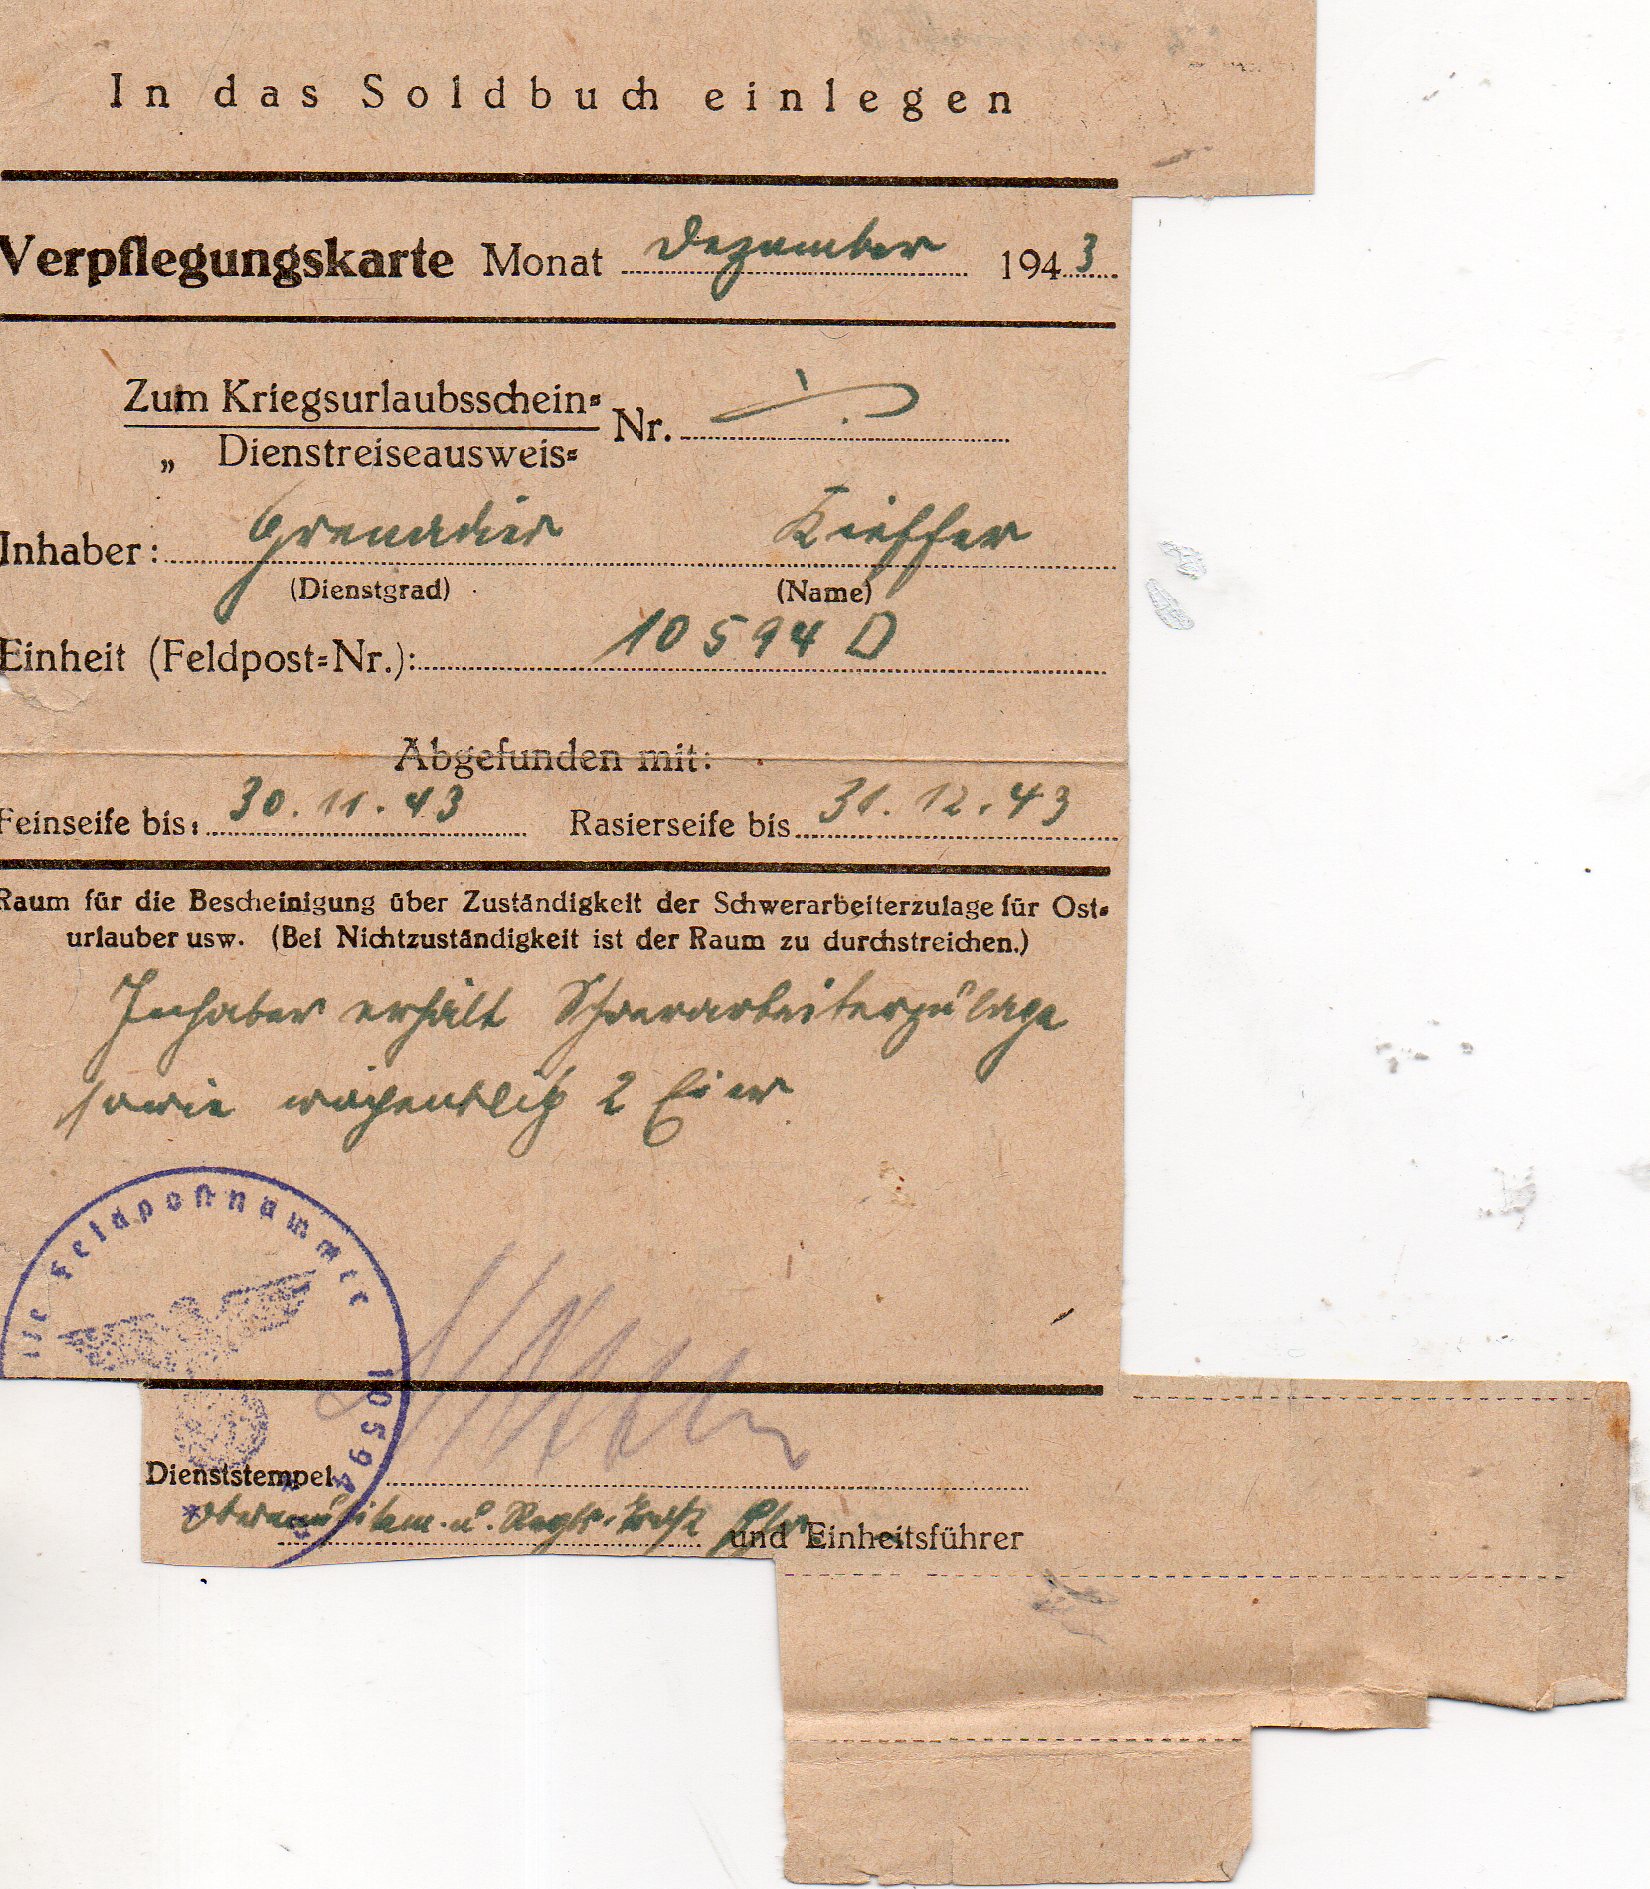 In das Soldbuch einlegen
Verpflegungskarte Monat Dezember 1943
Zum Kriegsurlaubsschein=
Nr.
„ Dienstreiseausweis=
Inhaber: Grenadier Kieffer
(Dienstgrad) (Name)
Einheit (Feldpost=Nr.): 10594 D
Abgefunden mit:
Feinseife bis: 30.11.43 Rasierseife bis 31.12.43
Raum für die Bescheinigung über Zuständigkeit der Schwerarbeiterzulage für Ost=
urlauber usw. (Bei Nichtzuständigkeit ist der Raum zu durchstreichen.)
Inhaber erhält Schwerarbeiterzulage
sowie wöchentlich 2 Eier
Feldpostnummer
10594
Dienststempel
u.
und Einheitsführer